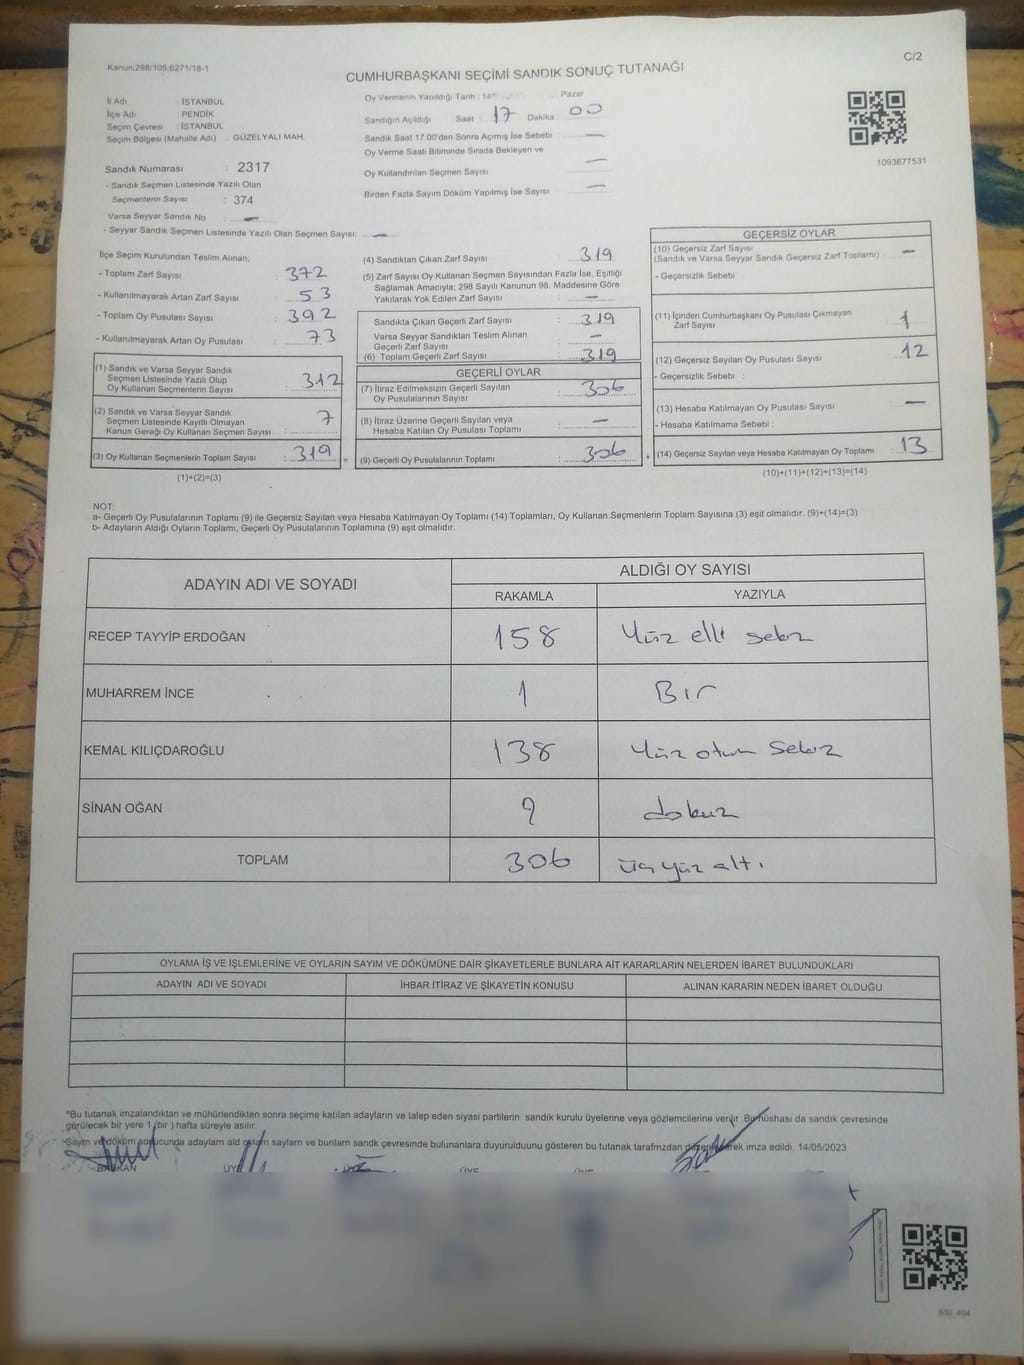 Kanun:298/105;6271/18-1
C/2
CUMHURBAŞKANI SEÇİMİ SANDIK SONUÇ TUTANAĞI
İl Adı : İSTANBUL
İlçe Adı : PENDİK
Seçim Çevresi : İSTANBUL
Seçim Bölgesi (Mahalle Adı) : GÜZELYALI MAH.
Sandık Numarası : 2317
- Sandık Seçmen Listesinde Yazılı Olan
Seçmenlerin Sayısı : 374
Varsa Seyyar Sandık No : —
- Seyyar Sandık Seçmen Listesinde Yazılı Olan Seçmen Sayısı: —
Oy Vermenin Yapıldığı Tarih : 14 Pazar
Sandığın Açıldığı Saat : 17 Dakika : 00
Sandık Saat 17:00'den Sonra Açılmış İse Sebebi : —
Oy Verme Saati Bitiminde Sırada Bekleyen ve
Oy Kullandırılan Seçmen Sayısı : —
Birden Fazla Sayım Döküm Yapılmış İse Sayısı : —
1093677531
İlçe Seçim Kurulundan Teslim Alınan;
- Toplam Zarf Sayısı : 372
- Kullanılmayarak Artan Zarf Sayısı : 53
- Toplam Oy Pusulası Sayısı : 392
- Kullanılmayarak Artan Oy Pusulası : 73
(1) Sandık ve Varsa Seyyar Sandık
Seçmen Listesinde Yazılı Olup
Oy Kullanan Seçmenlerin Sayısı : 312
(2) Sandık ve Varsa Seyyar Sandık
Seçmen Listesinde Kayıtlı Olmayan
Kanun Gereği Oy Kullanan Seçmen Sayısı : 7
(3) Oy Kullanan Seçmenlerin Toplam Sayısı : 319 =
(1)+(2)=(3)
(4) Sandıktan Çıkan Zarf Sayısı : 319
(5) Zarf Sayısı Oy Kullanan Seçmen Sayısından Fazla İse, Eşitliği
Sağlamak Amacıyla; 298 Sayılı Kanunun 98. Maddesine Göre
Yakılarak Yok Edilen Zarf Sayısı : —
Sandıkta Çıkan Geçerli Zarf Sayısı : 319
Varsa Seyyar Sandıktan Teslim Alınan
Geçerli Zarf Sayısı : —
(6) Toplam Geçerli Zarf Sayısı : 319
GEÇERLİ OYLAR
(7) İtiraz Edilmeksizin Geçerli Sayılan
Oy Pusulalarının Sayısı : 306
(8) İtiraz Üzerine Geçerli Sayılan veya
Hesaba Katılan Oy Pusulası Toplamı : —
(9) Geçerli Oy Pusulalarının Toplamı : 306 +
GEÇERSİZ OYLAR
(10) Geçersiz Zarf Sayısı
(Sandık ve Varsa Seyyar Sandık Geçersiz Zarf Toplamı) : —
- Geçersizlik Sebebi :
(11) İçinden Cumhurbaşkanı Oy Pusulası Çıkmayan
Zarf Sayısı : 1
(12) Geçersiz Sayılan Oy Pusulası Sayısı : 12
- Geçersizlik Sebebi :
(13) Hesaba Katılmayan Oy Pusulası Sayısı : —
- Hesaba Katılmama Sebebi :
(14) Geçersiz Sayılan veya Hesaba Katılmayan Oy Toplamı : 13
(10)+(11)+(12)+(13)=(14)
NOT:
a- Geçerli Oy Pusulalarının Toplamı (9) ile Geçersiz Sayılan veya Hesaba Katılmayan Oy Toplamı (14) Toplamları, Oy Kullanan Seçmenlerin Toplam Sayısına (3) eşit olmalıdır. (9)+(14)=(3)
b- Adayların Aldığı Oyların Toplamı, Geçerli Oy Pusulalarının Toplamına (9) eşit olmalıdır.
ADAYIN ADI VE SOYADI ALDIĞI OY SAYISI
RAKAMLA YAZIYLA
RECEP TAYYİP ERDOĞAN 158 Yüz elli sekiz
MUHARREM İNCE 1 Bir
KEMAL KILIÇDAROĞLU 138 Yüz otuz Sekiz
SİNAN OĞAN 9 dokuz
TOPLAM 306 üç yüz altı
OYLAMA İŞ VE İŞLEMLERİNE VE OYLARIN SAYIM VE DÖKÜMÜNE DAİR ŞİKAYETLERLE BUNLARA AİT KARARLARIN NELERDEN İBARET BULUNDUKLARI
ADAYIN ADI VE SOYADI İHBAR İTİRAZ VE ŞİKAYETİN KONUSU ALINAN KARARIN NEDEN İBARET OLDUĞU
"Bu tutanak imzalandıktan ve mühürlendikten sonra seçime katılan adayların ve talep eden siyasi partilerin sandık kurulu üyelerine veya gözlemcilerine verilir. Bu nüshası da sandık çevresinde
görülecek bir yere 1 (bir ) hafta süreyle asılır.
Sayım ve döküm sonucunda adayların ald oyların sayların ve bunların sandk çevresinde bulunanlara duyurulduunu gösteren bu tutanak tarafmzdan düzenlenerek imza edildi. 14/05/2023
BAŞKAN ÜYE ÜYE ÜYE ÜYE